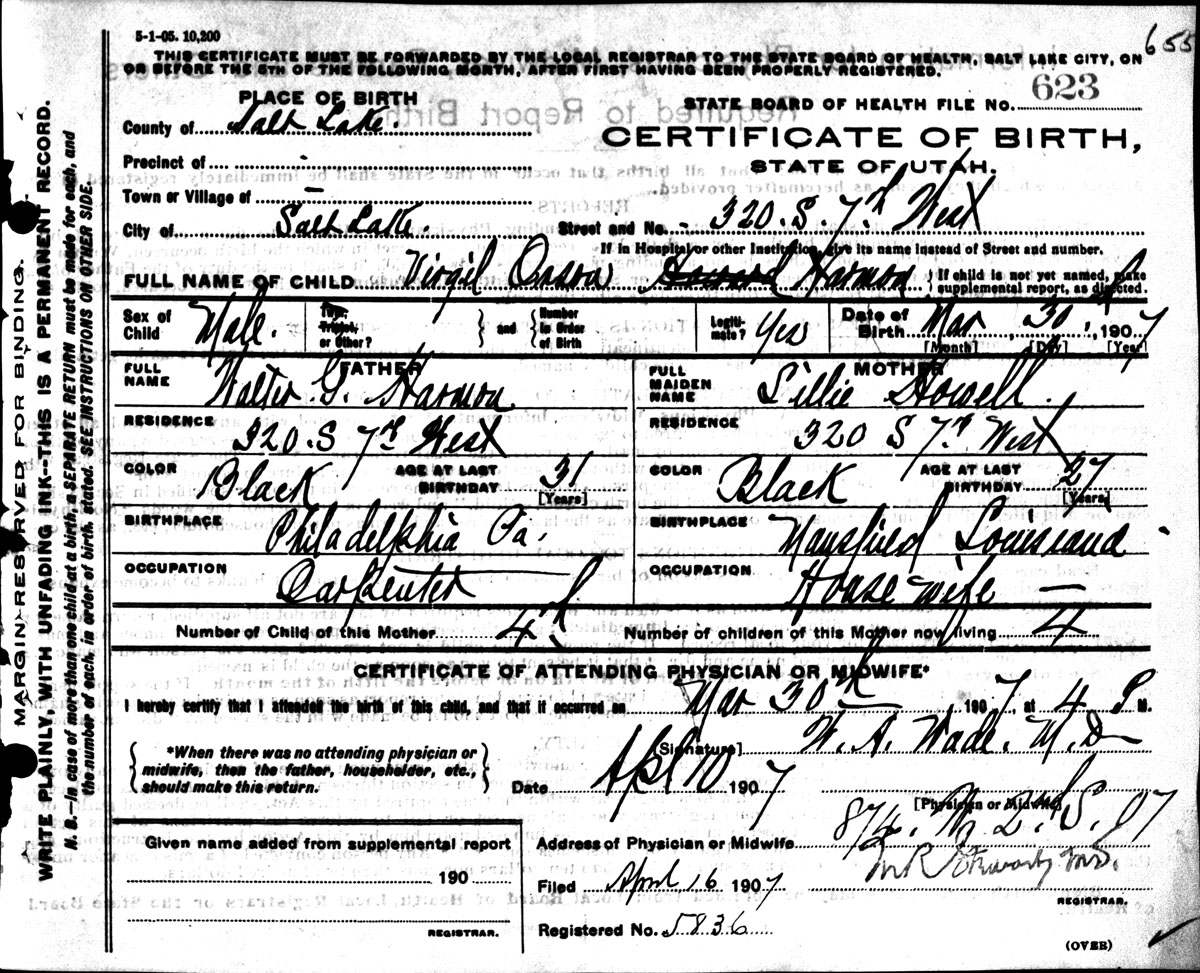 655
5-1-05. 10,200
THIS CERTIFICATE MUST BE FORWARDED BY THE LOCAL REGISTRAR TO THE STATE BOARD OF HEALTH, SALT LAKE CITY, ON
OR BEFORE THE 5TH OF THE FOLLOWING MONTH, AFTER FIRST HAVING BEEN PROPERLY REGISTERED.
PLACE OF BIRTH
STATE BOARD OF HEALTH FILE NO. 623
County of Salt Lake.
CERTIFICATE OF BIRTH,
STATE OF UTAH.
Precinct of -
Town or Village of -
City of Salt Lake
Street and No. - 320. S. 7th West
If in Hospital or other Institution, give its name instead of Street and number.
FULL NAME OF CHILD Virgil Orson Howard Harmon
If child is not yet named, make
supplemental report, as directed.
Sex of Child Male.
Twin, Triplet, or Other?
and
Number in Order of Birth
Legiti-mate? Yes
Date of Birth Mar 30th, 1907
[Month] [Day] [Year]
FATHER
FULL NAME Walter G. Harmon.
RESIDENCE 320. S 7th West
COLOR Black AGE AT LAST BIRTHDAY 31 [Years]
BIRTHPLACE Philadelphia Pa.
OCCUPATION Carpenter
MOTHER
FULL MAIDEN NAME Lillie Howell.
RESIDENCE 320 S 7th West
COLOR Black AGE AT LAST BIRTHDAY 27 [Years]
BIRTHPLACE Mansfield Louisiana
OCCUPATION House wife —
Number of Child of this Mother 4th
Number of children of this Mother now living 4
CERTIFICATE OF ATTENDING PHYSICIAN OR MIDWIFE*
I hereby certify that I attended the birth of this child, and that it occurred on Mar 30th 1907, at 4 P. M.
*When there was no attending physician or
midwife, then the father, householder, etc.,
should make this return.
[Signature] W. A. Wade. M. D
Date Apl 10 1907
[Physician or Midwife]
Given name added from supplemental report
190
REGISTRAR.
Address of Physician or Midwife W. 2nd S. 07
Filed April 16 1907
REGISTRAR.
Registered No. 5836
(OVER)
MARGIN RESERVED FOR BINDING.
WRITE PLAINLY, WITH UNFADING INK--THIS IS A PERMANENT RECORD.
N. B.—In case of more than one child at a birth, a SEPARATE RETURN must be made for each, and
the number of each, in order of birth, stated. SEE INSTRUCTIONS ON OTHER SIDE.